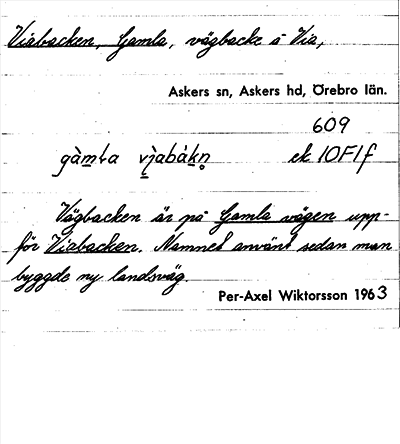 Viabacken, Gamla, vägbacke å Via,
Askers sn, Askers hd, Örebro län.
609
gàmla vi̯abákn̥ ek 10F1f
Vägbacken är på Gamla vägen upp-
för Viabacken. Namnet använt sedan man
byggde ny landsväg.
Per-Axel Wiktorsson 1963